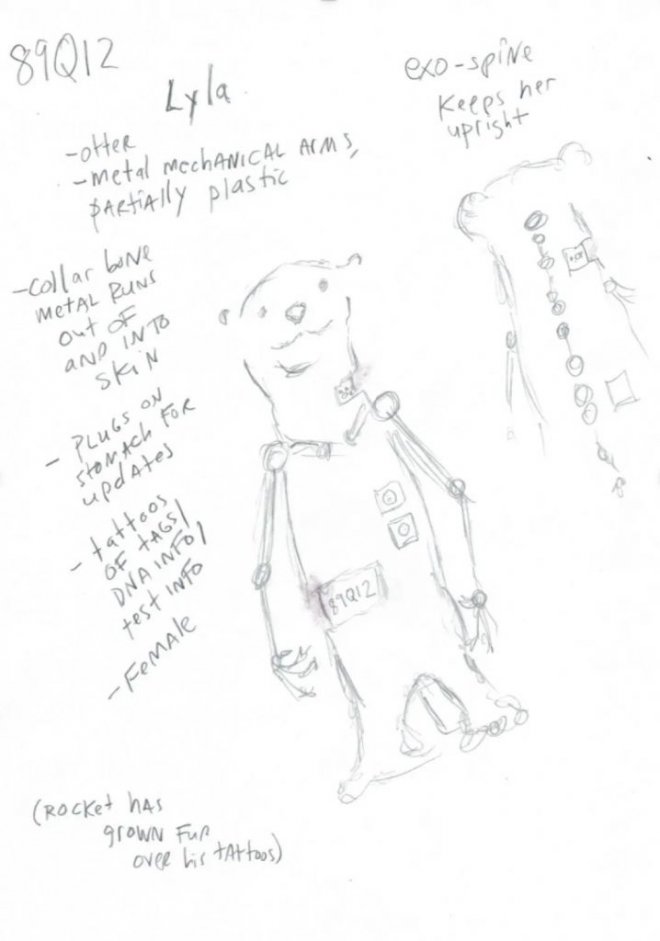 89Q12
Lyla
-otter
-metal mechanical arms,
partially plastic
exo-spine
keeps her
upright
-collar bone
metal runs
out of
and into
skin
- plugs on
stomach for
updates
- tattoos
of tags/
DNA info/
test info
- Female
89Q12
(Rocket has
grown fur
over his tattoos)